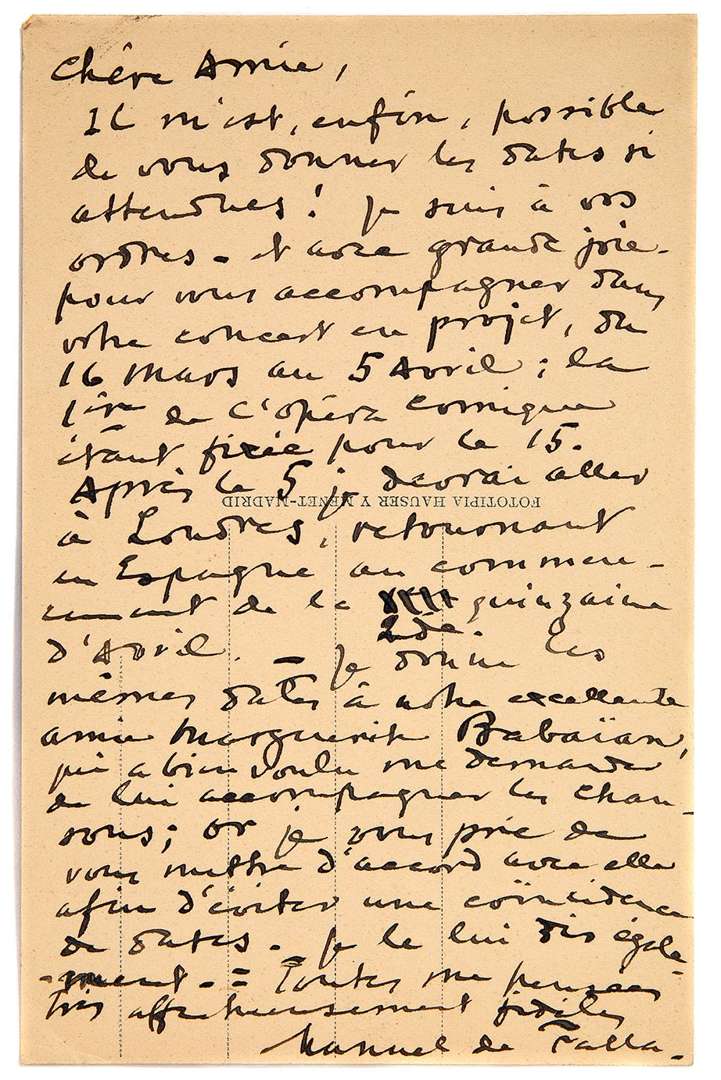 Chère Amie,
Il m'est, enfin, possible
de vous donner les dates si
attendues! Je suis à vos
ordres – et avec grande joie –
pour vous accompagner dans
votre concert en projet, du
16 Mars au 5 Avril; la
1ère de l'Opéra Comique
étant fixée pour le 15.
Après le 5 je devrai aller
FOTOTIPIA HAUSER Y MENET-MADRID
à Londres, retournant
en Espagne au commen-
cement de la quinzaine
2de
d'Avril. – Je donne les
mêmes dates à notre excellente
amie Marguerite Babaïan,
qui a bien voulu me demander
de lui accompagner les chan-
sons; or je vous prie de
vous mettre d'accord avec elle
afin d'éviter une coïncidence
de dates – Je le lui dis égale-
ment. – = Toutes mes pensées
très affectueusement fidèles
Manuel de Falla